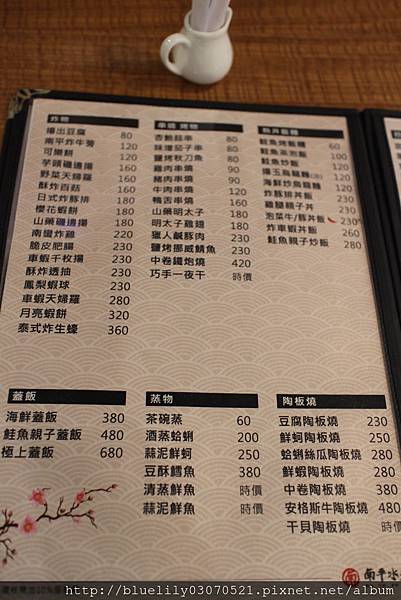 炸物
揚出豆腐 80
南平炸牛蒡 120
可樂餅 120
芋頭磯邊揚 160
野菜天婦羅 160
酥炸百菇 160
日式炸豚排 180
櫻花蝦餅 180
山藥磯邊揚 180
南蠻炸雞 220
脆皮肥腸 230
車蝦千枚揚 230
酥炸透抽 230
鳳梨蝦球 230
車蝦天婦羅 280
月亮蝦餅 320
泰式炸生蠔 360
串燒 烤物
杏鮑菇串 80
味噌茄子串 80
鹽烤秋刀魚 80
雞肉串燒 90
豬肉串燒 90
牛肉串燒 120
鴨舌串燒 180
山藥明太子 180
明太子雞翅 180
獵人鹹豚肉 230
鹽烤挪威鯖魚 230
中卷鐵炮燒 420
巧手一夜干 時價
鮭魚烤飯糰 60
鮭魚茶泡飯 100
鮭魚炒飯 120
揚玉烏龍麵
海鮮炒烏龍麵
炸豚排丼飯
雞腿親子丼
泡菜牛/豚丼飯
炸車蝦丼飯 280
鮭魚親子炒飯 280
蓋飯
海鮮蓋飯 380
鮭魚親子蓋飯 480
極上蓋飯 680
蒸物
茶碗蒸 60
酒蒸蛤蜊 200
蒜泥鮮蚵 250
豆酥鱈魚 380
清蒸鮮魚 時價
蒜泥鮮魚 時價
陶板燒
豆腐陶板燒 230
鮮蚵陶板燒 250
蛤蜊絲瓜陶板燒 280
鮮蝦陶板燒 380
中卷陶板燒 380
安格斯牛陶板燒 480
干貝陶板燒 時價
南平
http://bluelily03070521.pixnet.net/album